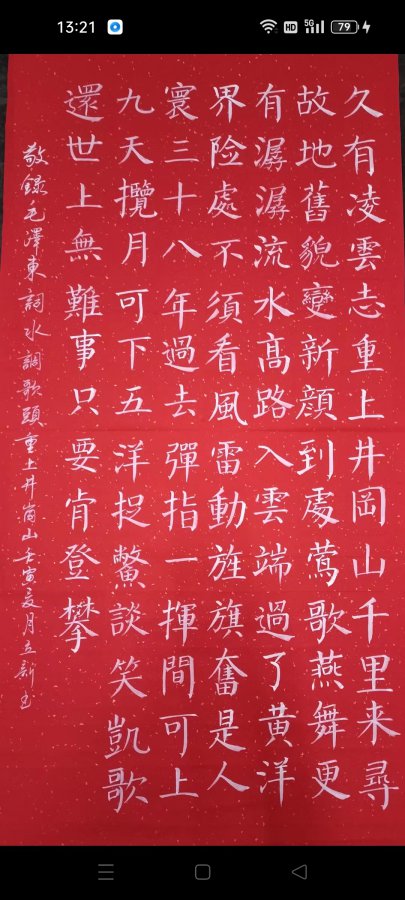 13:21
HD 5G 79
久有凌雲志重上井岡山千里来尋
故地舊貌變新顔到處莺歌燕舞更
有潺潺流水高路入雲端過了黄洋
界险處不須看風雷動旌旗奮是人
寰三十八年過去彈指一揮間可上
九天攬月可下五洋捉鱉談笑凱歌
還世上無難事只要肯登攀
敬錄毛澤東詞水調歌頭重上井崗山壬寅夏月立新书